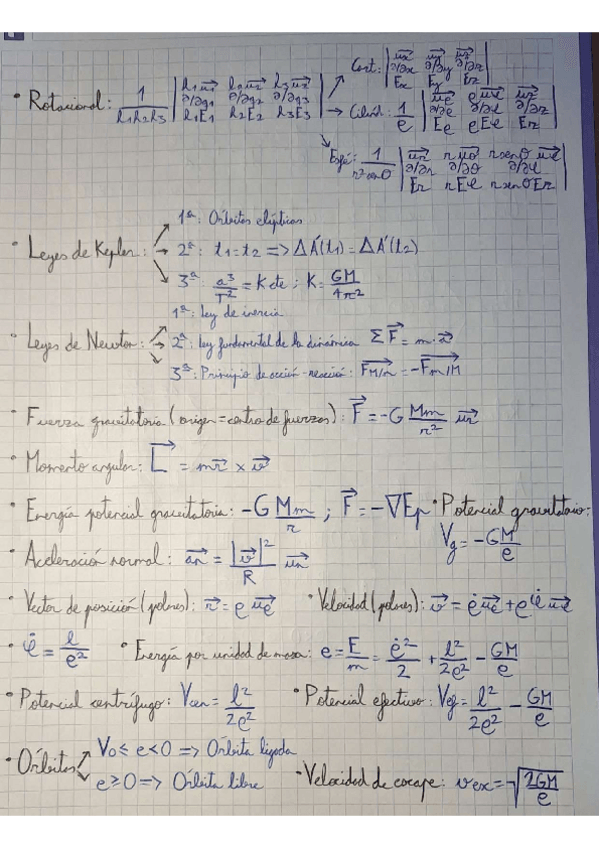 Cart: | ux→ uy→ uz→ |
| ∂/∂x ∂/∂y ∂/∂z |
| Ex Ey Ez |
· Rotacional: 1/(h1h2h3) | h1u1→ h2u2→ h3u3→ |
| ∂/∂q1 ∂/∂q2 ∂/∂q3 |
| h1E1 h2E2 h3E3 |
→ Cilínd: 1/ρ | uρ→ ρuφ→ uz→ |
| ∂/∂ρ ∂/∂φ ∂/∂z |
| Eρ ρEφ Ez |
Esfé: 1/(r² senθ) | ur→ r uθ→ r senθ uφ→ |
| ∂/∂r ∂/∂θ ∂/∂φ |
| Er rEφ r senθ Er |
1ª: Órbitas elípticas
· Leyes de Kepler: → 2ª: t1 = t2 => ΔA(t1) = ΔA(t2)
3ª: a³/T² = K cte ; K = GM/4π²
1ª: ley de inercia
· Leyes de Newton: → 2ª: ley fundamental de la dinámica ΣF→ = m·a→
3ª: Principio de acción-reacción: F→M/m = -F→m/M
· Fuerza gravitatoria (origen = centro de fuerzas): F→ = -G Mm/r² ur→
· Momento angular: L→ = mr→ x v→
· Energía potencial gravitatoria: -G Mm/r ; F→ = -∇Ep · Potencial gravitatorio:
Vg = -GM/ρ
· Aceleración normal: an→ = |v→|²/R un→
· Vector de posición (polares): r→ = ρ uρ→ · Velocidad (polares): v→ = ρ̇ uρ→ + ρφ̇ uφ→
· φ̇ = l/ρ² · Energía por unidad de masa: e = E/m = ρ̇²/2 + l²/2ρ² - GM/ρ
· Potencial centrífugo: Vcen = l²/2ρ² · Potencial efectivo: Vef = l²/2ρ² - GM/ρ
· Órbitas V0 ≤ e < 0 => Órbita ligada
e ≥ 0 => Órbita libre · Velocidad de escape: vex = √(2GM/ρ)